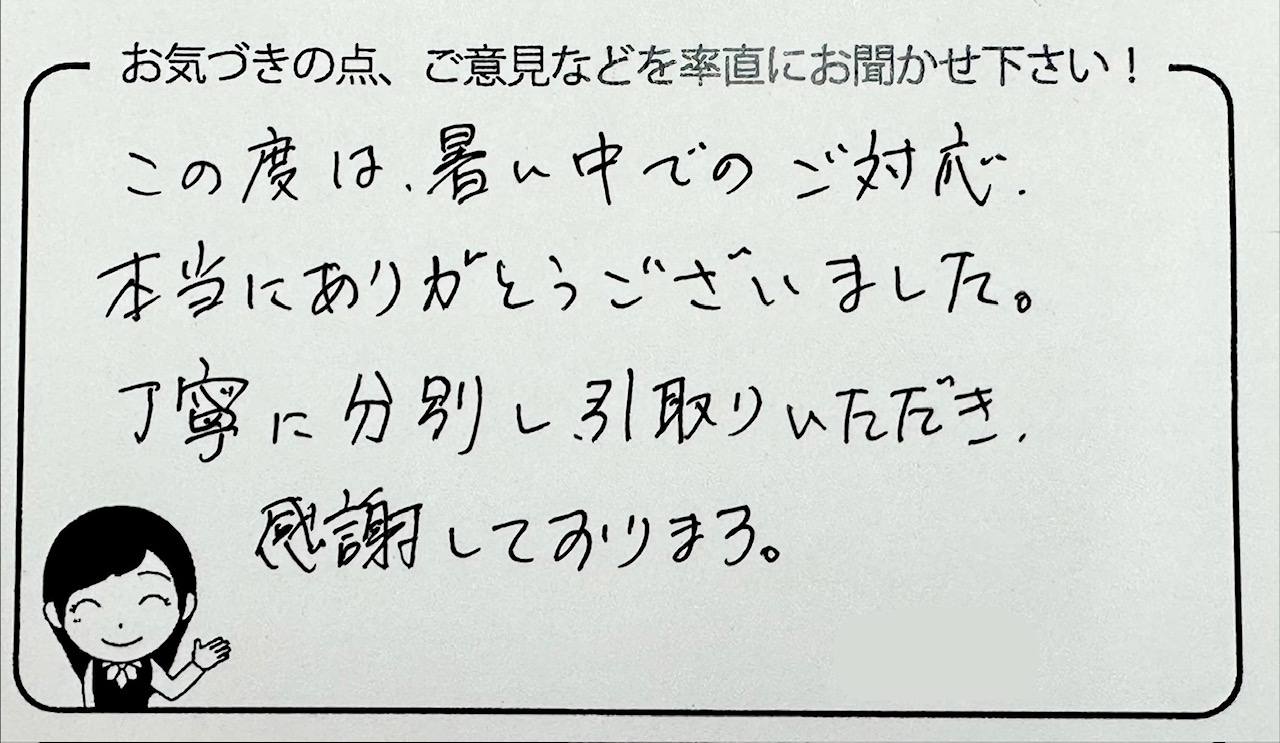 お気づきの点、ご意見などを率直にお聞かせ下さい！
この度は、暑い中でのご対応、
本当にありがとうございました。
丁寧に分別し、引取りいただき、
感謝しております。